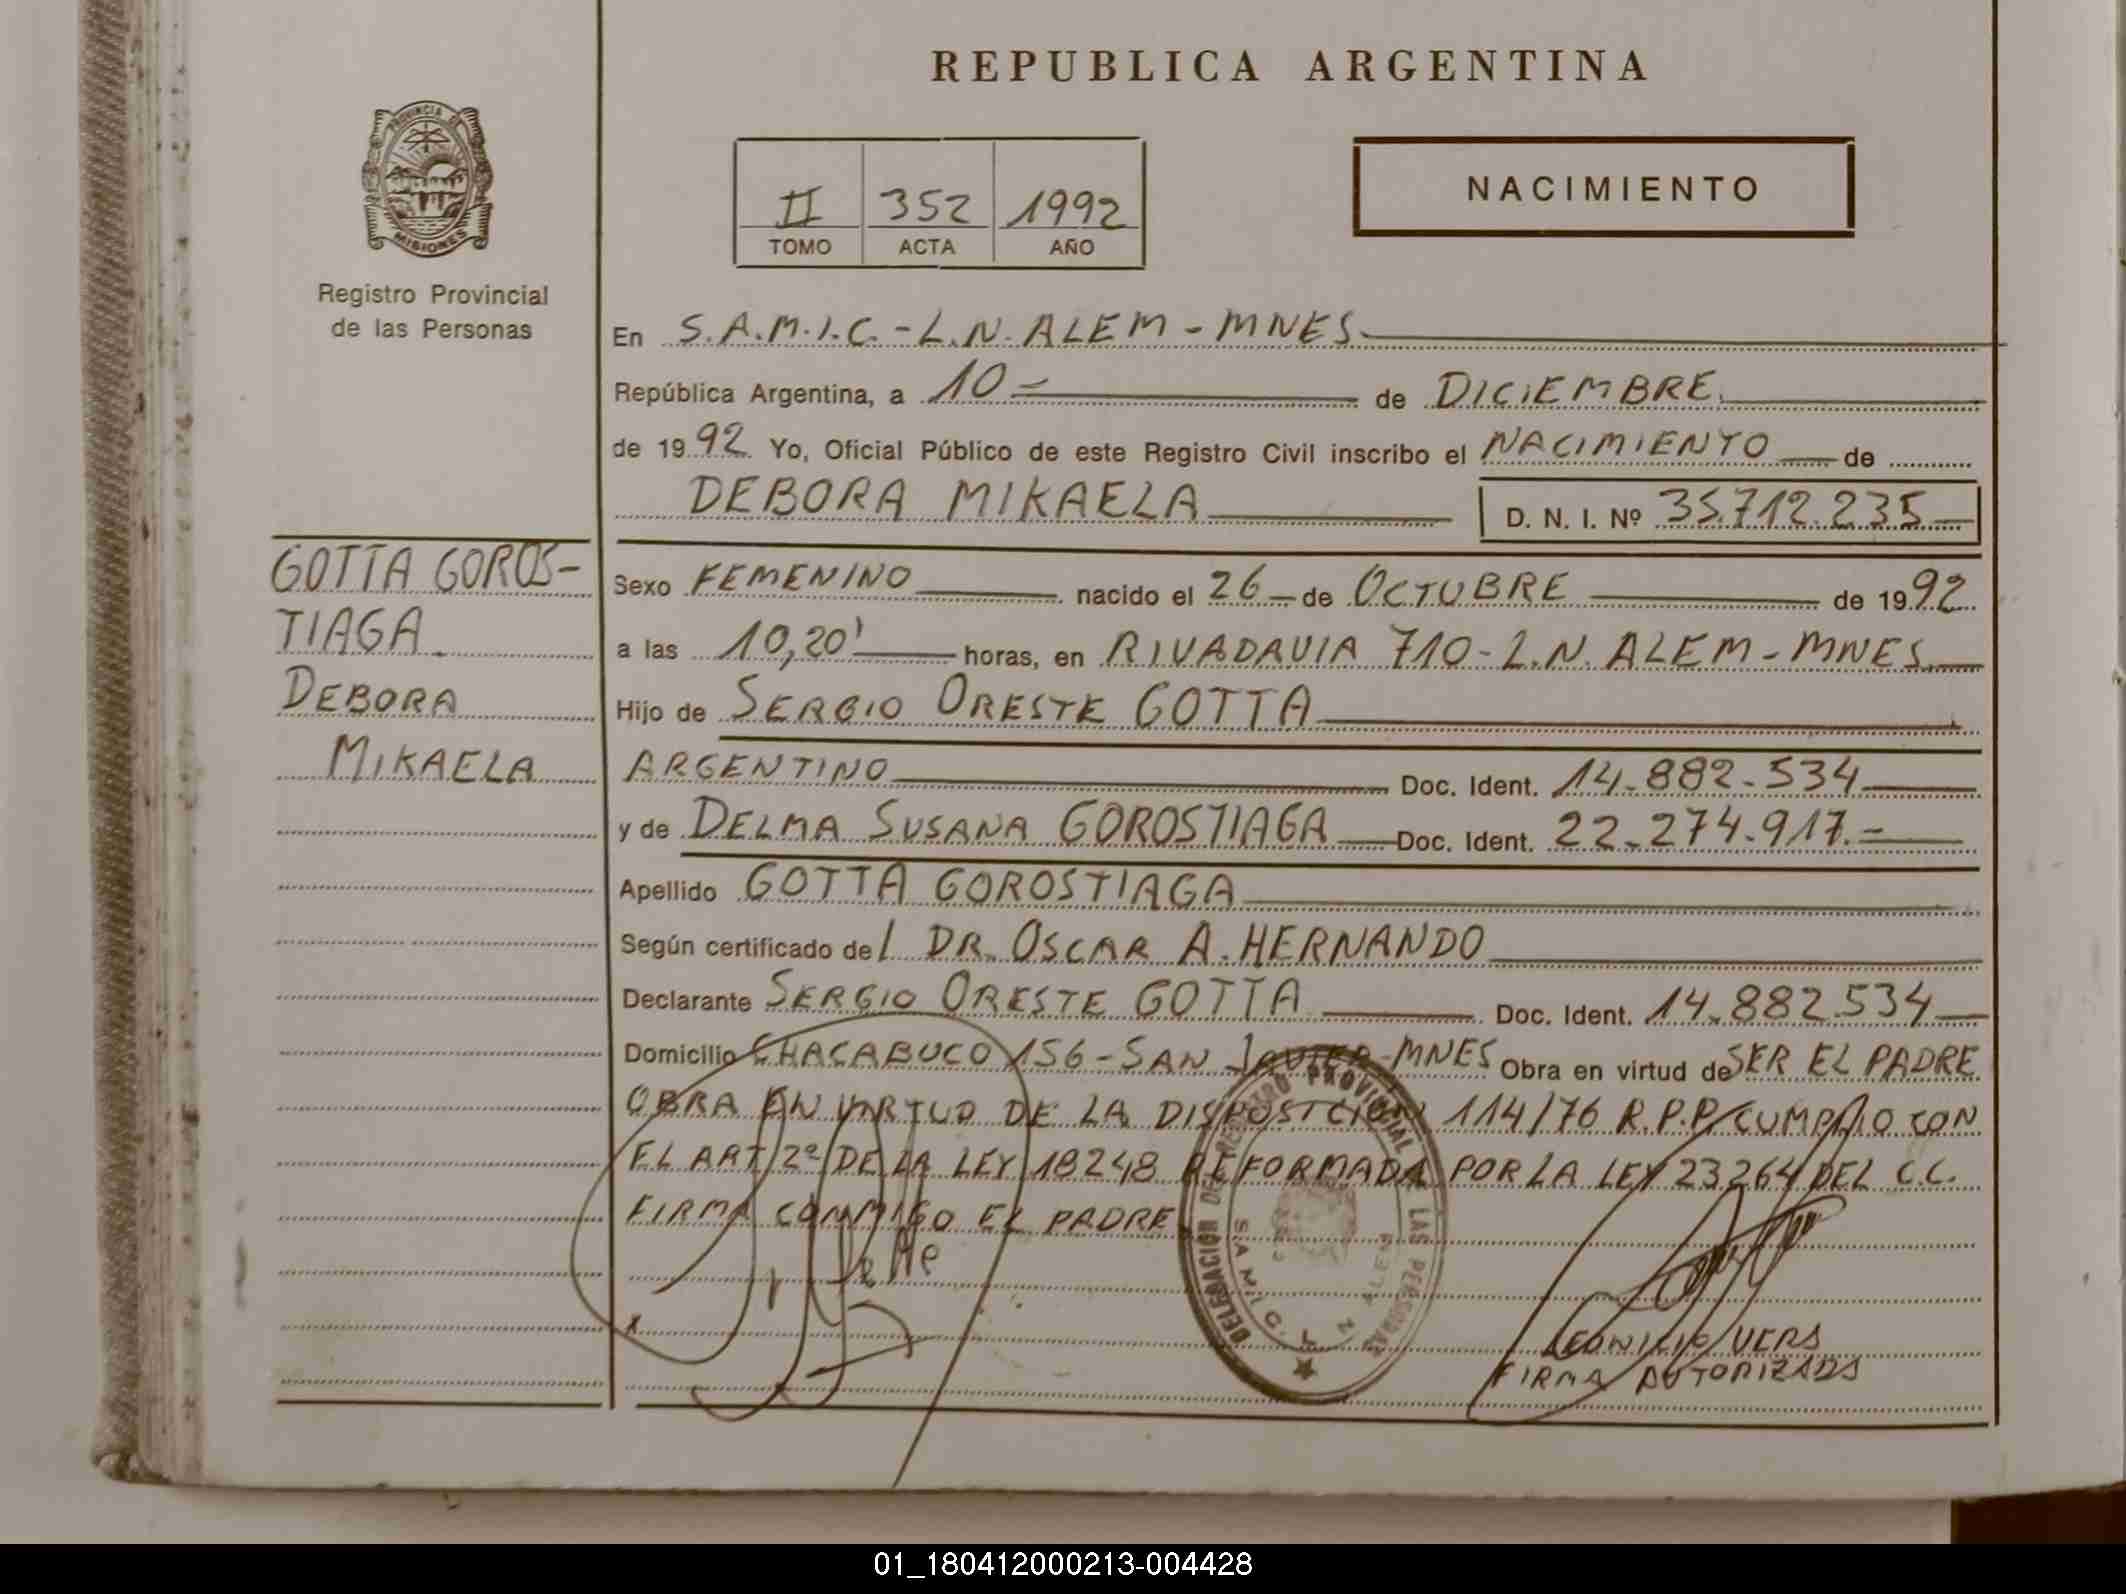 REPUBLICA ARGENTINA
PROVINCIA DE
MISIONES
Registro Provincial
de las Personas
II 352 1992
TOMO ACTA AÑO
NACIMIENTO
En S.A.M.I.C.-L.N.ALEM-MNES
República Argentina, a 10= de DICIEMBRE
de 1992 Yo, Oficial Público de este Registro Civil inscribo el NACIMIENTO de
DEBORA MIKAELA D. N. I. Nº 35.712.235
GOTTA GOROS-
TIAGA
DEBORA
MIKAELA
Sexo FEMENINO nacido el 26 de OCTUBRE de 1992
a las 10,20' horas, en RIVADAVIA 710-L.N.ALEM-MNES
Hijo de SERGIO ORESTE GOTTA
ARGENTINO Doc. Ident. 14.882.534
y de DELMA SUSANA GOROSTIAGA Doc. Ident. 22.274.917.=
Apellido GOTTA GOROSTIAGA
Según certificado del DR. OSCAR A. HERNANDO
Declarante SERGIO ORESTE GOTTA Doc. Ident. 14.882.534
Domicilio CHACABUCO 156-SAN JAVIER-MNES Obra en virtud de SER EL PADRE
OBRA EN VIRTUD DE LA DISPOSICION 114/76 R.P.P. CUMPLIO CON
EL ART 2º DE LA LEY 18248 REFORMADA POR LA LEY 23264 DEL C.C.
FIRMA CONMIGO EL PADRE
DELEGACION DEL REGISTRO PROVINCIAL DE LAS PERSONAS
S A M I C. L N ALEM
LEONICIO VERS
FIRMA AUTORIZADA
01_180412000213-004428